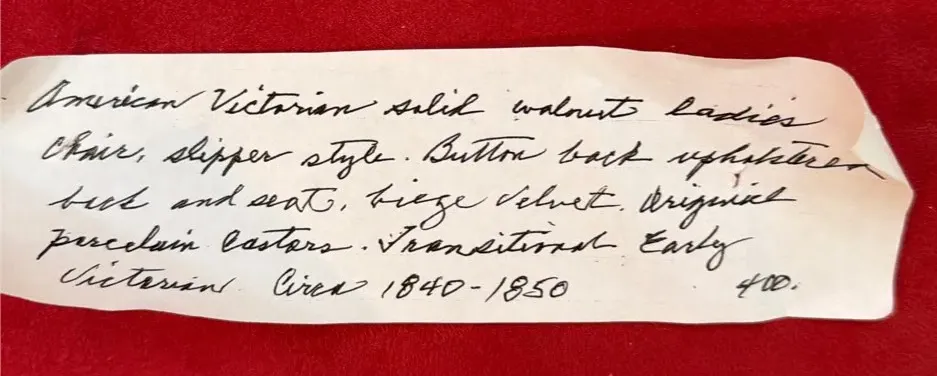 American Victorian solid walnut ladies
Chair, slipper style. Button back upholstered
back and seat, biege velvet. Original
porcelain castors. Transitional Early
Victorian Circa 1840-1850 400.